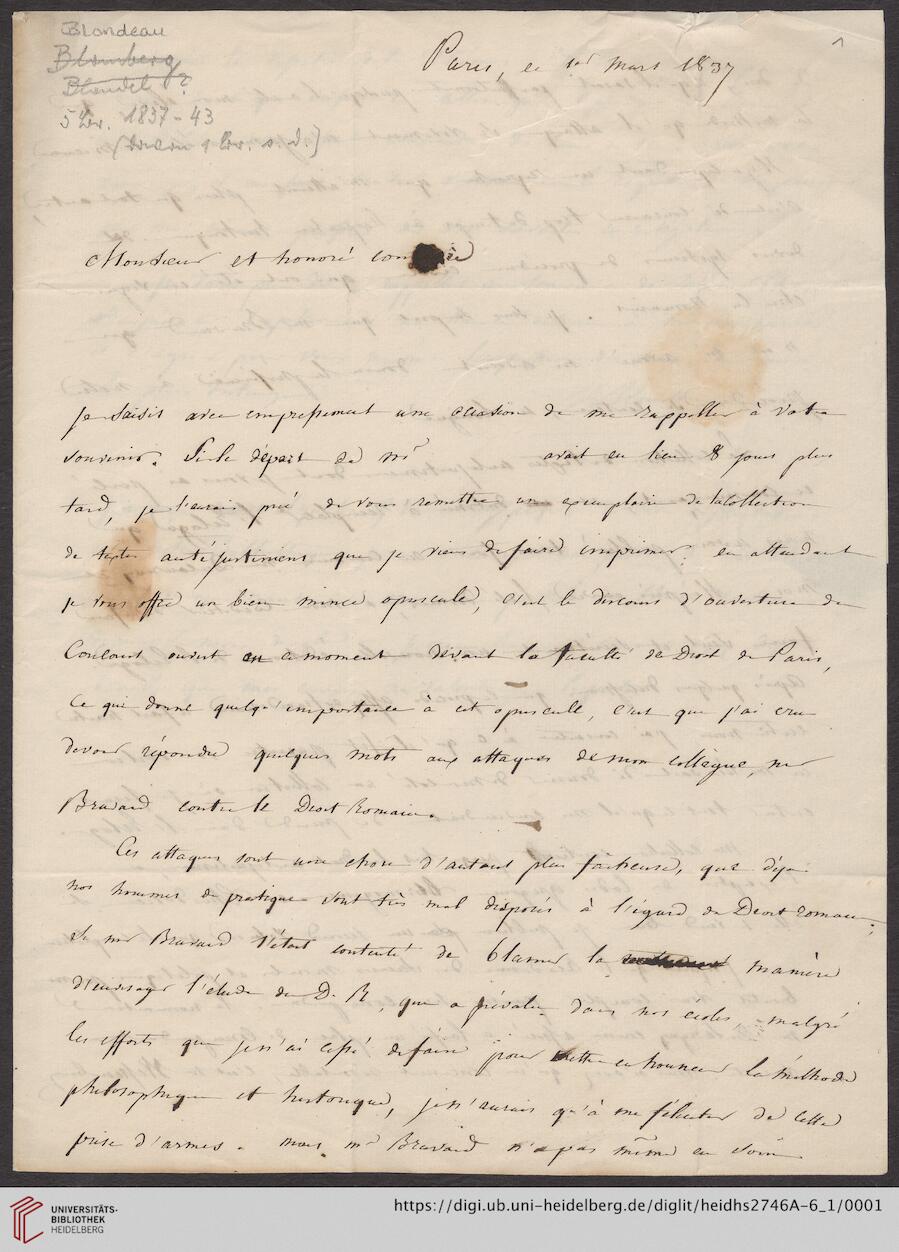 Blondeau
Blomberg
Blondel ?
5 Br. 1837-43
(davon 1 Br. s. d.)
1
Paris, ce 1er Mars 1837
Monsieur et honoré con
Je saisis avec empressement une occasion de me rappeller à votre
souvenir. Si le départ de Mr avait eu lieu 8 jours plus
tard, je l'aurais prié de vous remettre un exemplaire de la Collection
de textes antéjustiniens que je viens de faire imprimer. en attendant
je vous offre un bien mince opuscule, c'est le discours d'ouverture du
Concours ouvert en ce moment devant la faculté de Droit de Paris,
Ce qui donne quelqu'importance à cet opuscule, c'est que j'ai cru
devoir répondre quelques mots aux attaques de mon collègue, mr
Bravard contre le Droit Romain.
Ces attaques sont une chose d'autant plus fâcheuse, que déja
nos hommes de pratique sont très mal disposés à l'égard du Droit romain;
si mr Bravard s'était contenté de blamer la manière
d'envisager l'étude du D. R, qui a prévalu dans nos écoles malgré
les efforts que je n'ai cessé de faire pour mettre en honneur la méthode
philosophique et historique, je n'aurais qu'à me féliciter de cette
prise d'armes. mais mr Bravard n'a pas même eu soin
UNIVERSITÄTS-
BIBLIOTHEK
HEIDELBERG
https://digi.ub.uni-heidelberg.de/diglit/heidhs2746A-6_1/0001